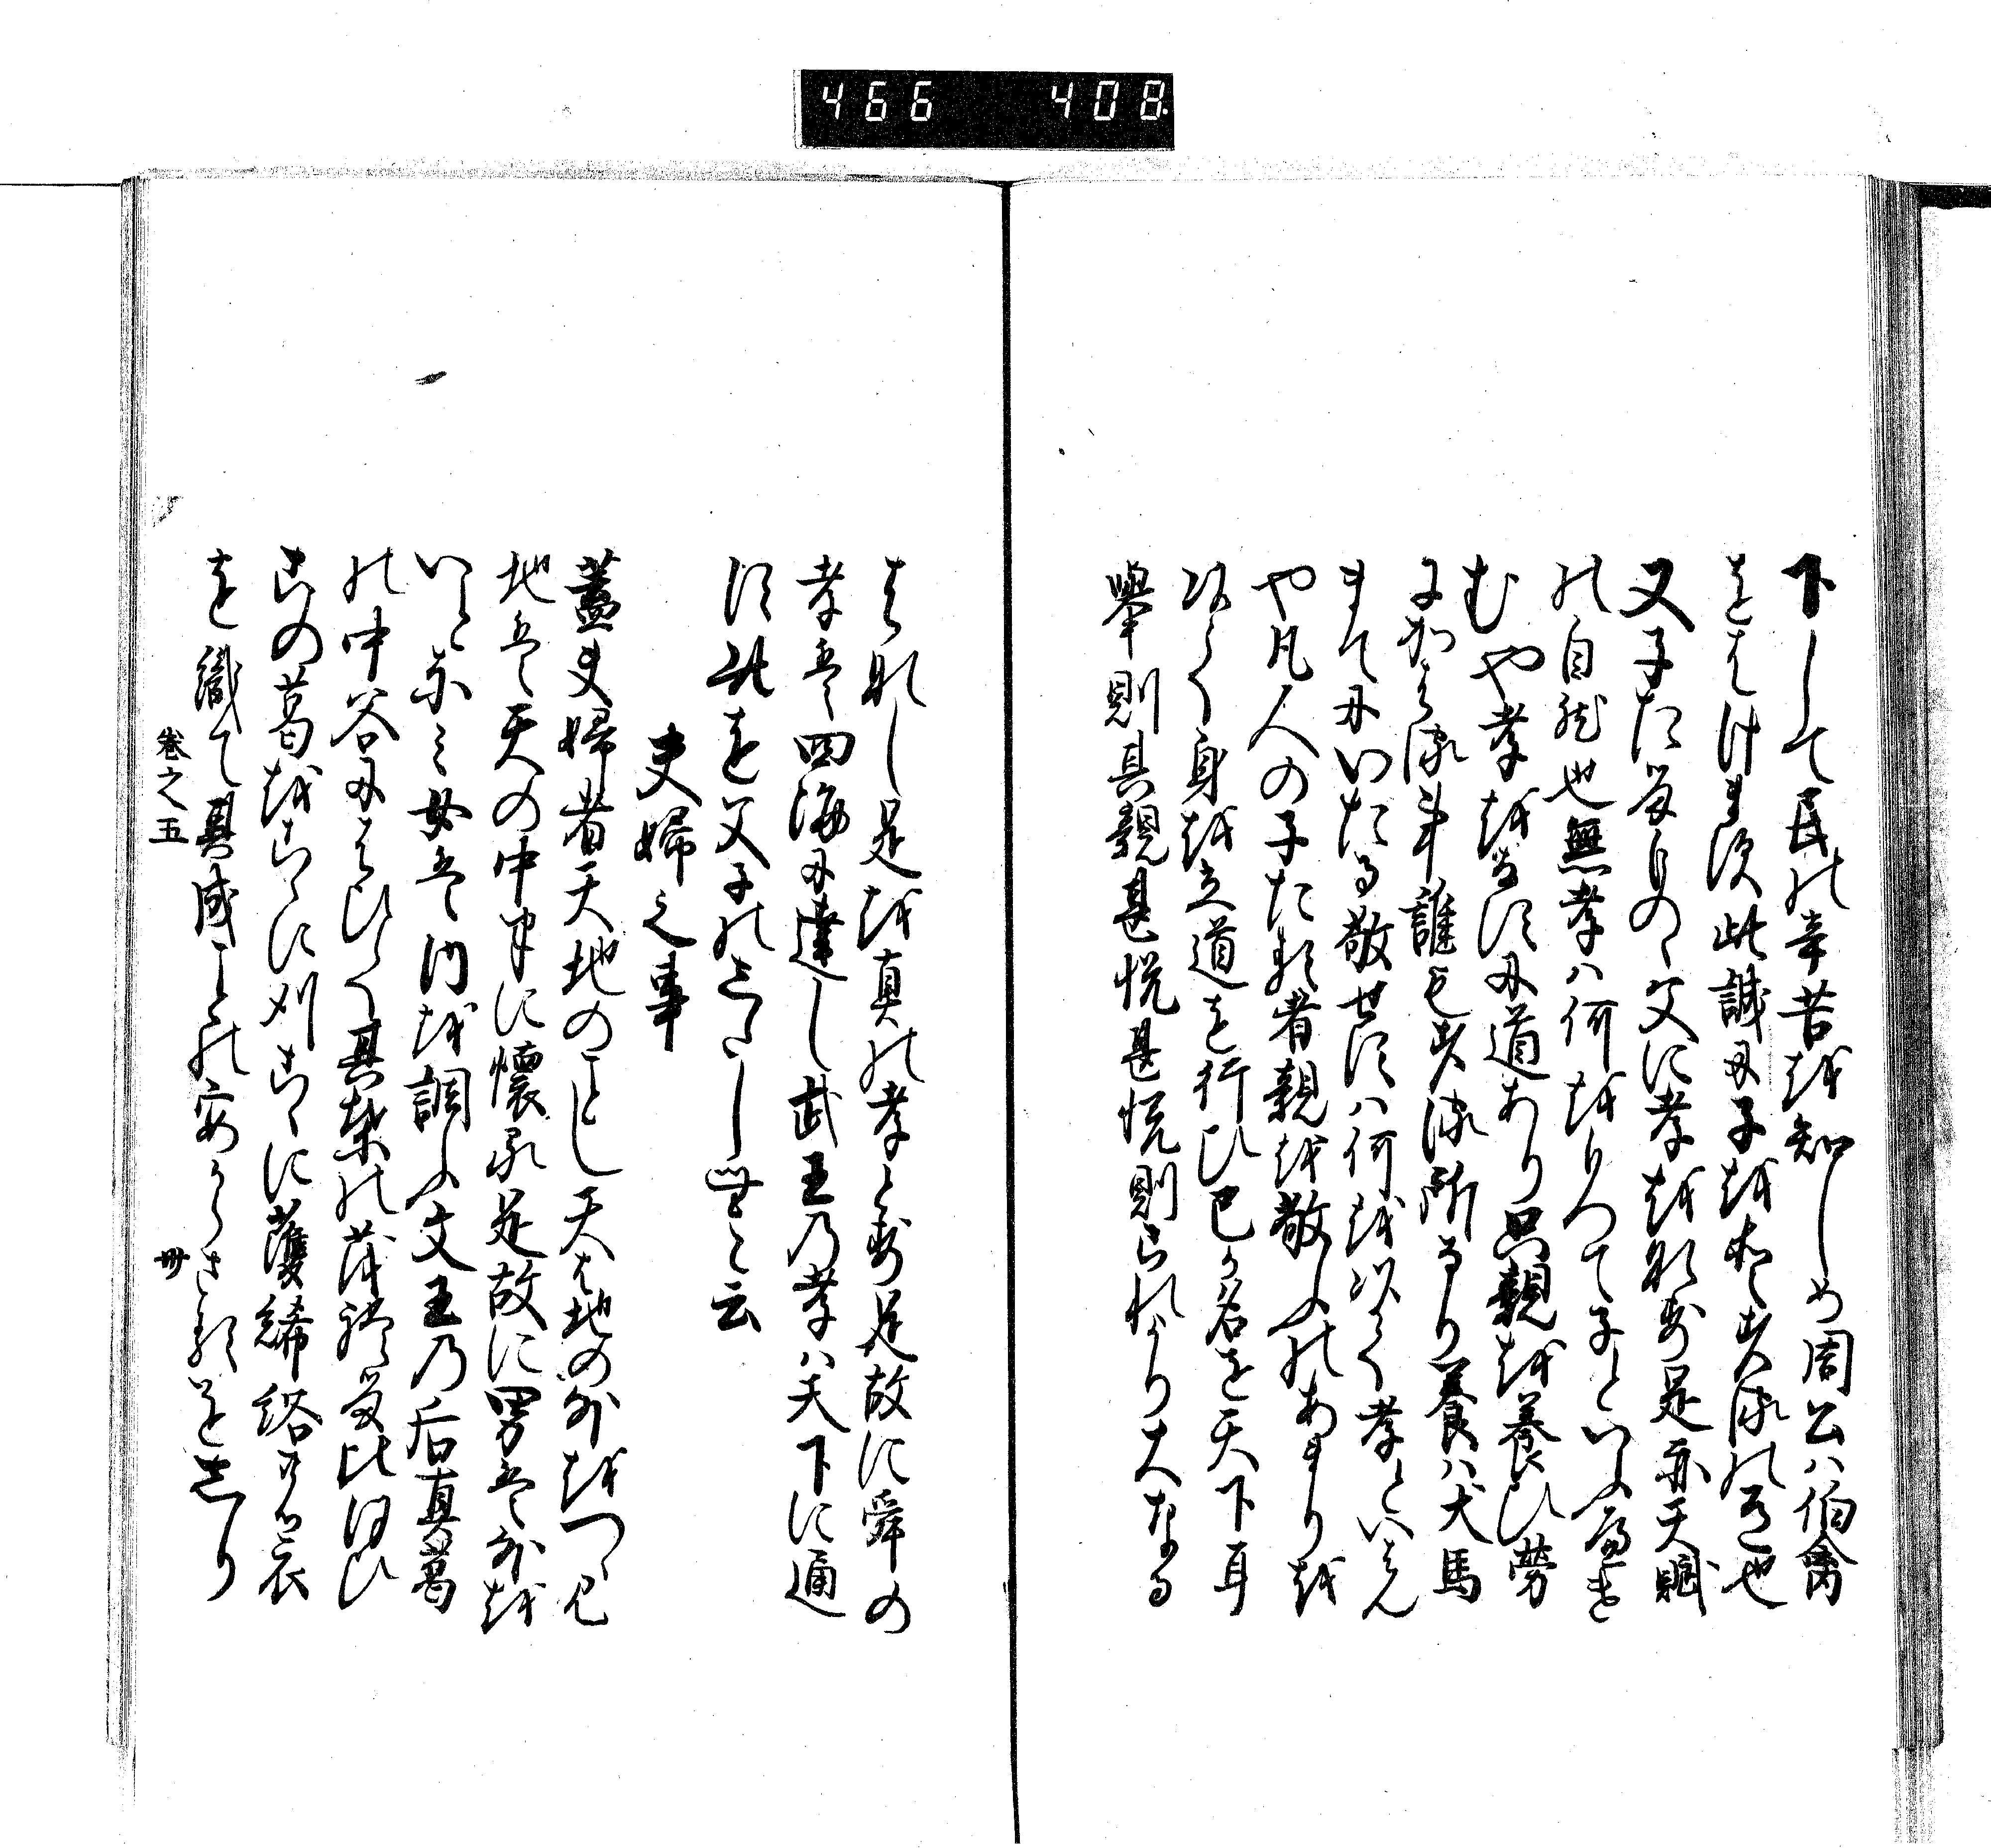 466 408
下して民の辛苦を知しめ周公ハ伯禽
をはけます此誠に子をおしゆるの道也
又子たるものゝ父に孝をなす是亦天賦
の自然也無孝ハ何をもつて子といふへき
むや孝をなすに道あり只親を養ひ労
にかはる事誰もする所なり養ハ犬馬
まてにいたる敬せすハ何を以て孝といはん
や凡人の子たる者親を敬ふのあまりを
以て身を立道を行ひ己か名を天下に
舉則其親甚悦甚悦則これより大なる
はなし是を真の孝とす是故に舜の
孝は四海に達し武王の孝ハ天下に通
す此を父子のしたし云
夫婦之事
蓋夫婦者天地のことし天は地の外をつゝみ
地は天の中に懐る是故に男は外を
いとなみ女は内を調ふ文王の后葛
の中谷にはひて其葉の茂
その葛をこゝに刈こゝに濩絺綌衣
を織て其成ことの安からさるをしり
巻之五 卌